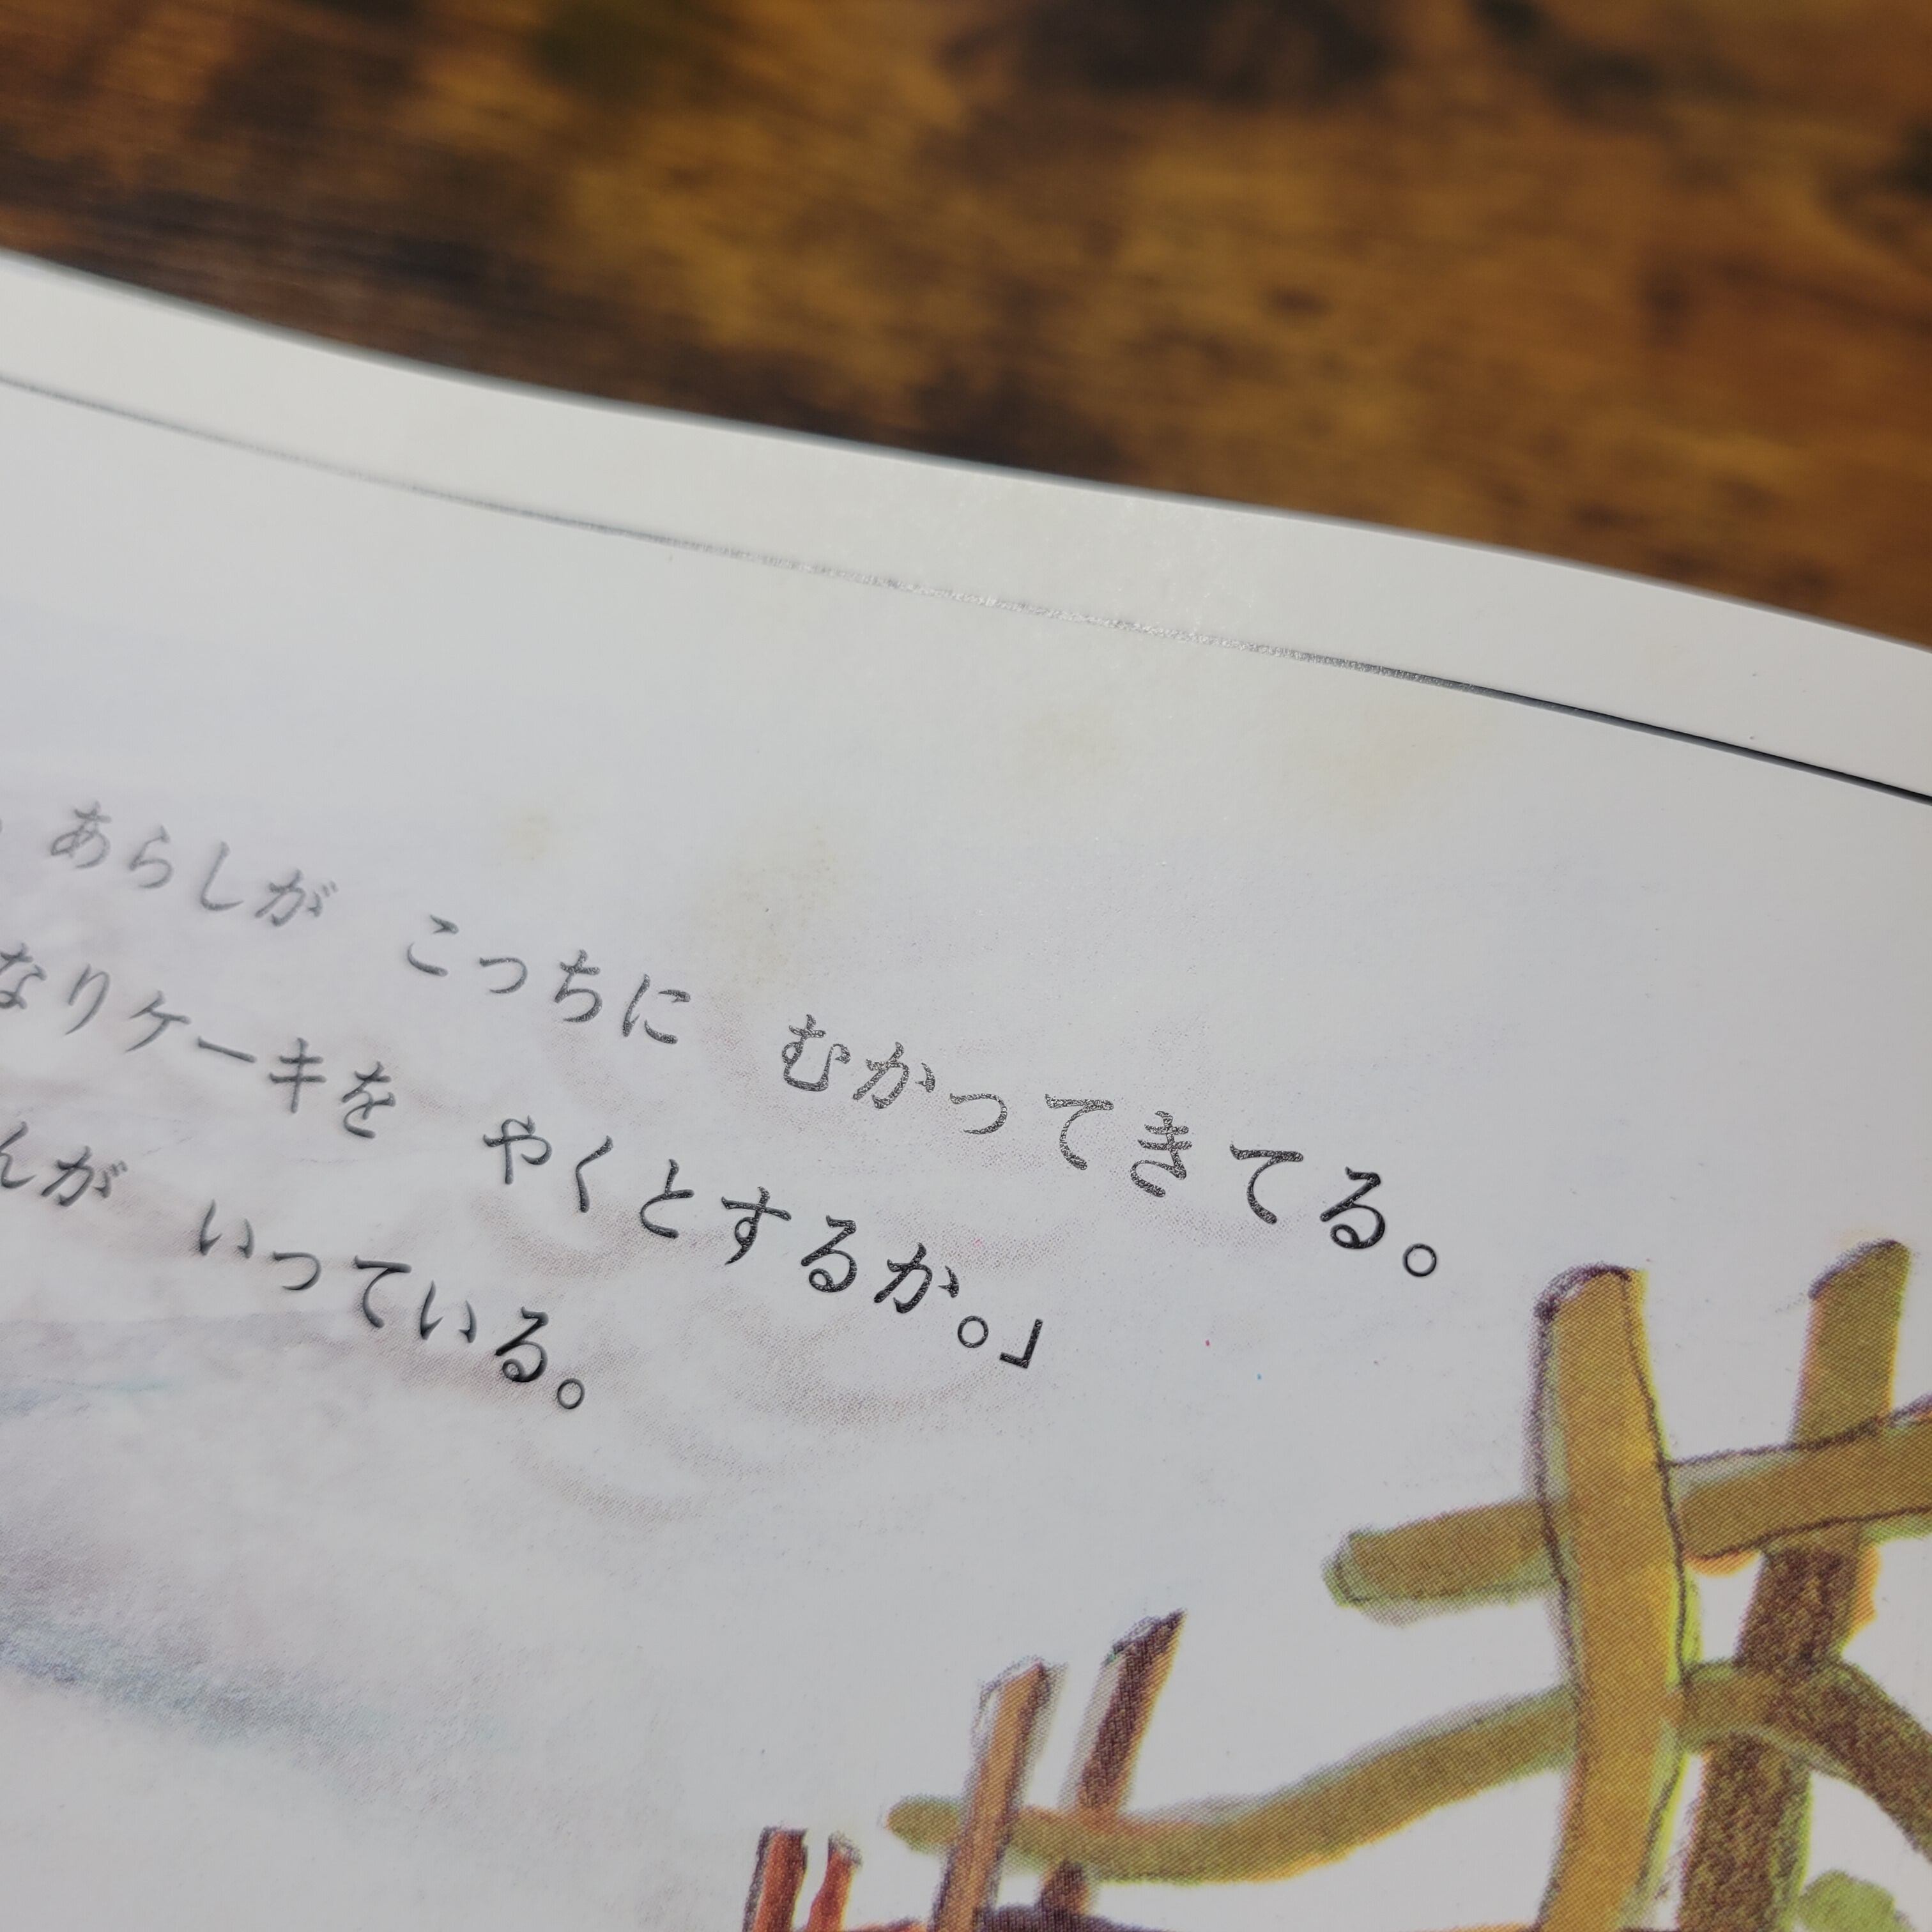 あらしが　こっちに　むかってきてる。
なりケーキを　やくとするか。」
んが　いっている。